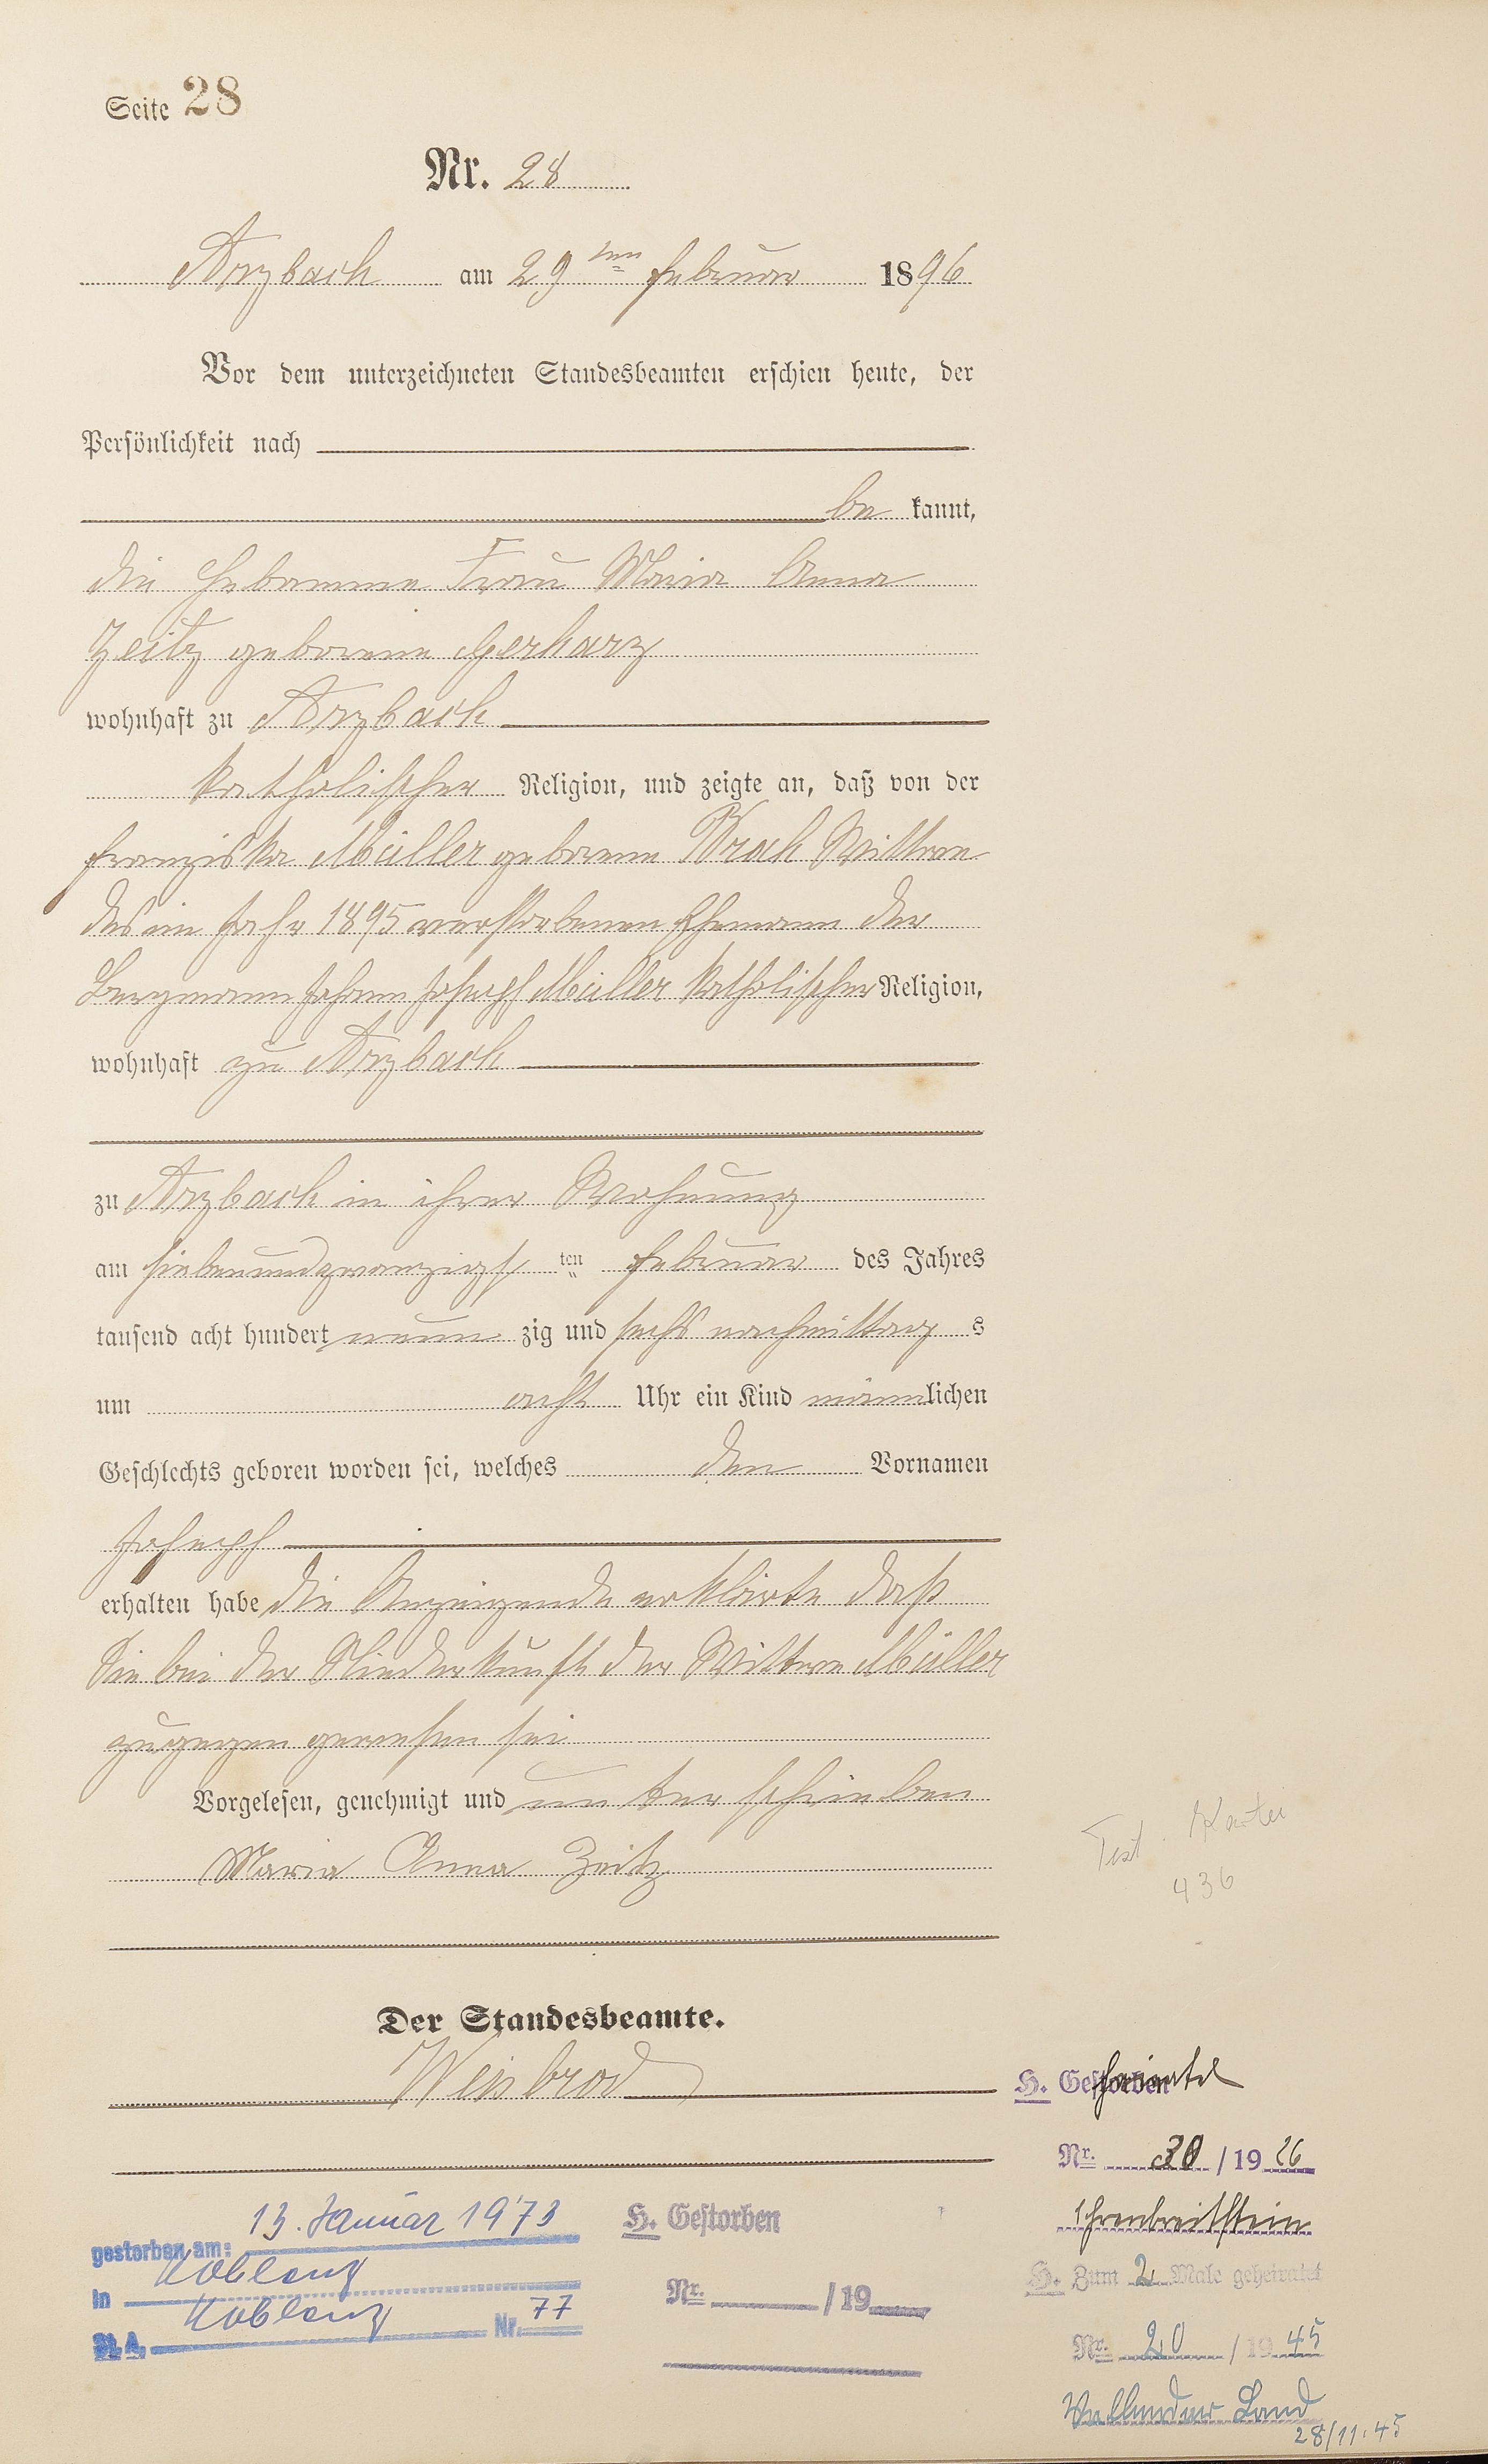 Seite 28
Nr. 28
Arzbach am 29ten Februar 1896
Vor dem unterzeichneten Standesbeamten erschien heute, der
Persönlichkeit nach
be kannt,
die Hebamme Frau Maria Anna
Zeitz geborene Gerharz
wohnhaft zu Arzbach
katholischer Religion, und zeigte an, daß von der
Franziska Müller geborene Brach Wittwe
des im Jahr 1895 verstorbenen Ehemann der
Bergmann Johann Joseph Müller katholischer Religion,
wohnhaft zu Arzbach
zu Arzbach in ihrer Wohnung
am siebenundzwanzigst ten Februar des Jahres
tausend acht hundert neun zig und sechs nachmittag s
um acht Uhr ein Kind männlichen
Geschlechts geboren worden sei, welches den Vornamen
Joseph
erhalten habe die Anzeigende erklärte daß
Sie bei der Niederkunft der Wittwe Müller
zugegen gewesen sei
Vorgelesen, genehmigt und unterschrieben
Maria Anna Zeitz
Test. Kartei
436
Der Standesbeamte.
Weisbrod
H. Gestorben heiratet
Nr. 30 / 19 26
Ehrenbreitstein
H. Zum 2 Male geheiratet
Nr. 20 / 19 45
Vallendar Land
28/11.45
gestorben am: 13. Januar 1973
in Koblenz
St. A. Koblenz Nr. 77
H. Gestorben
Nr. / 19